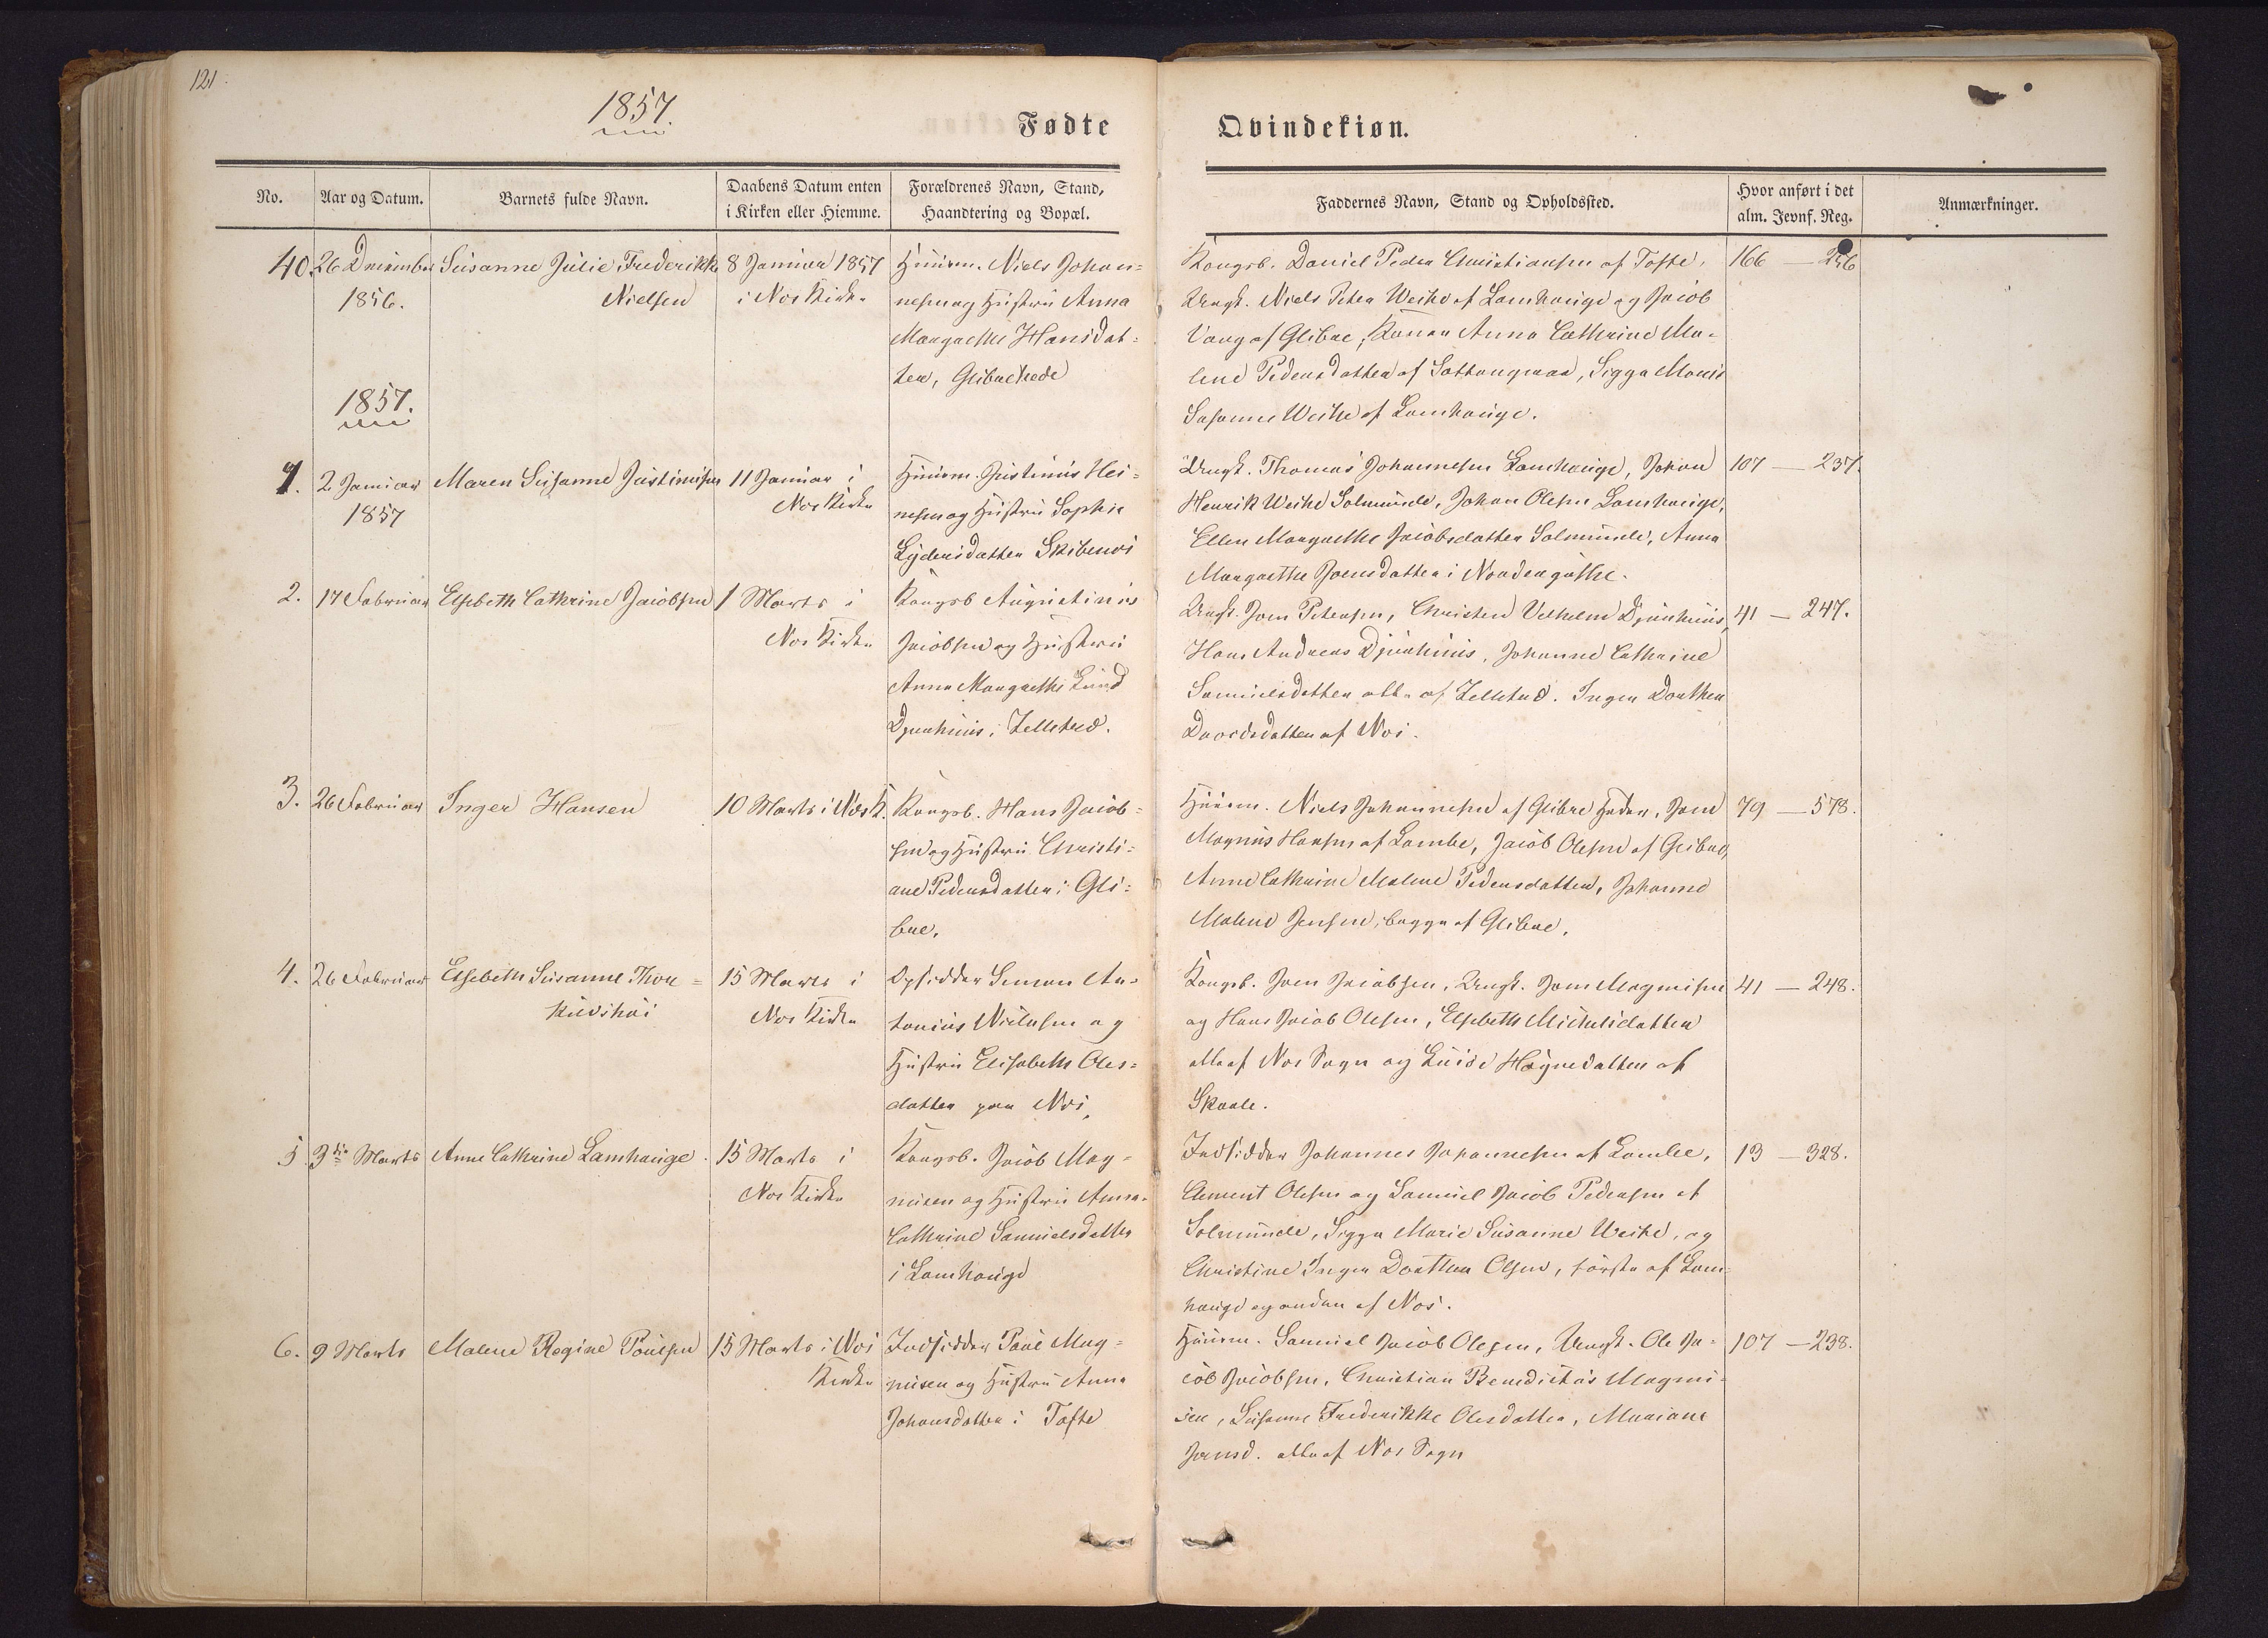 121.
1857.
Fødte
Qvindekiøn.
No.
Aar og Datum.
Barnets fulde Navn.
Daabens Datum enten
i Kirken eller Hiemme.
Forældrenes Navn, Stand,
Haandtering og Bopæl.
Faddernes Navn, Stand og Opholdssted.
Hvor anført i det
alm. Jevnf. Reg.
Anmærkninger.
40.
26 December
1856.
Susanne Julie Frederikke
Nielsen
8 Januar 1857
i Nes Kirke
Huusm. Niels Johan-
nesen og Hustru Anna
Margrethe Hansdat-
ter, Glibrehede
Kongsb. Daniel Peder Christiansen af Tofte,
Ungk. Niels Peter Weihe af Lamhauge og Jacob
Vang af Glibre, Konen Anna Cathrine Ma-
lene Pedersdatter af, Sigga Marie
Susanne Weihe af Lamhauge.
166 — 256
1857.
1.
2 Januar
1857
Maren Susanne Justinusen
11 Januar i
Nes Kirke
Huusm. Justinus Hei-
nesen og Hustru Sophie
Lydersdatter Skibenes
Ungk. Thomas Johannesen Lamhauge, Johan
Henrik Weihe Solmunde, Johan Olesen Lamhauge,
Ellen Margrethe Jacobsdatter Solmunde, Anna
Margrethe Joensdatter i Nordengøthe.
107 — 237.
2.
17 Februar
Elsebeth Cathrine Jacobsen
1 Marts i
Nes Kirke
Kongsb Augustinus
Jacobsen og Hustru
Anna Margrethe Lund
Djurhuus i Zelletræd.
Ungk. Joen Petersen, Christen Vilhelm Djurhuus,
Hans Andreas Djurhuus, Johanne Cathrine
Samuelsdatter alle af Zelletræd. Inger Dorthea
Daordsdatter af Nes.
41 — 247.
3.
26 Februar
Inger Hansen
10 Marts i Nes K.
Kongsb. Hans Jacob-
sen og Hustru Christi-
ane Pedersdatter i Gli-
bre.
Huusm. Niels Johannesen af Glibre Heder, Joen
Magnus Hansen af Lambe, Jacob Olesen af Glibre,
Anne Cathrine Malene Pedersdatter, Johanne
Malene Jensen, begge af Glibre.
79 — 578.
4.
26 Februar
Elsebeth Susanne Thor-
kildshøi
15 Marts i
Nes Kirke
Opsidder Simon An-
tonius Nielsen og
Hustru Elisabeth Oles-
datter paa Nes,
Kongsb. Joen Jacobsen, Ungk. Joen Magnusen
og Hans Jacob Olesen, Elsebeth Michelsdatter
alle af Nes Sogn og Luise Høgnedatter af
Skaale.
41 — 248.
5
3die Marts
Anne Cathrine Lamhauge.
15 Marts i
Nes Kirke
Kongsb. Jacob Mag-
nusen og Hustru Anna
Cathrine Samuelsdatter
i Lamhauge
Indsidder Johannes Johannesen af Lambe,
Clement Olesen og Samuel Jacob Pedersen af
Solmunde, Sigga Marie Susanne Weihe, og
Christine Inger Dorthea Olsen, første af Lam-
hauge og anden af Nes.
13 — 328.
6.
9 Marts
Malene Regine Poulsen
15 Marts i Nes
Kirke
Indsidder Poul Mag-
nusen og Hustru Anna
Johansdatter i Tofte
Huusm. Samuel Jacob Olesen, Ungk. Ole Ja-
cob Jacobsen, Christian Benedictus Magnu-
sen, Susanne Frederikke Olesdatter, Mariane
Joensd. alle af Nes Sogn
107 — 238.